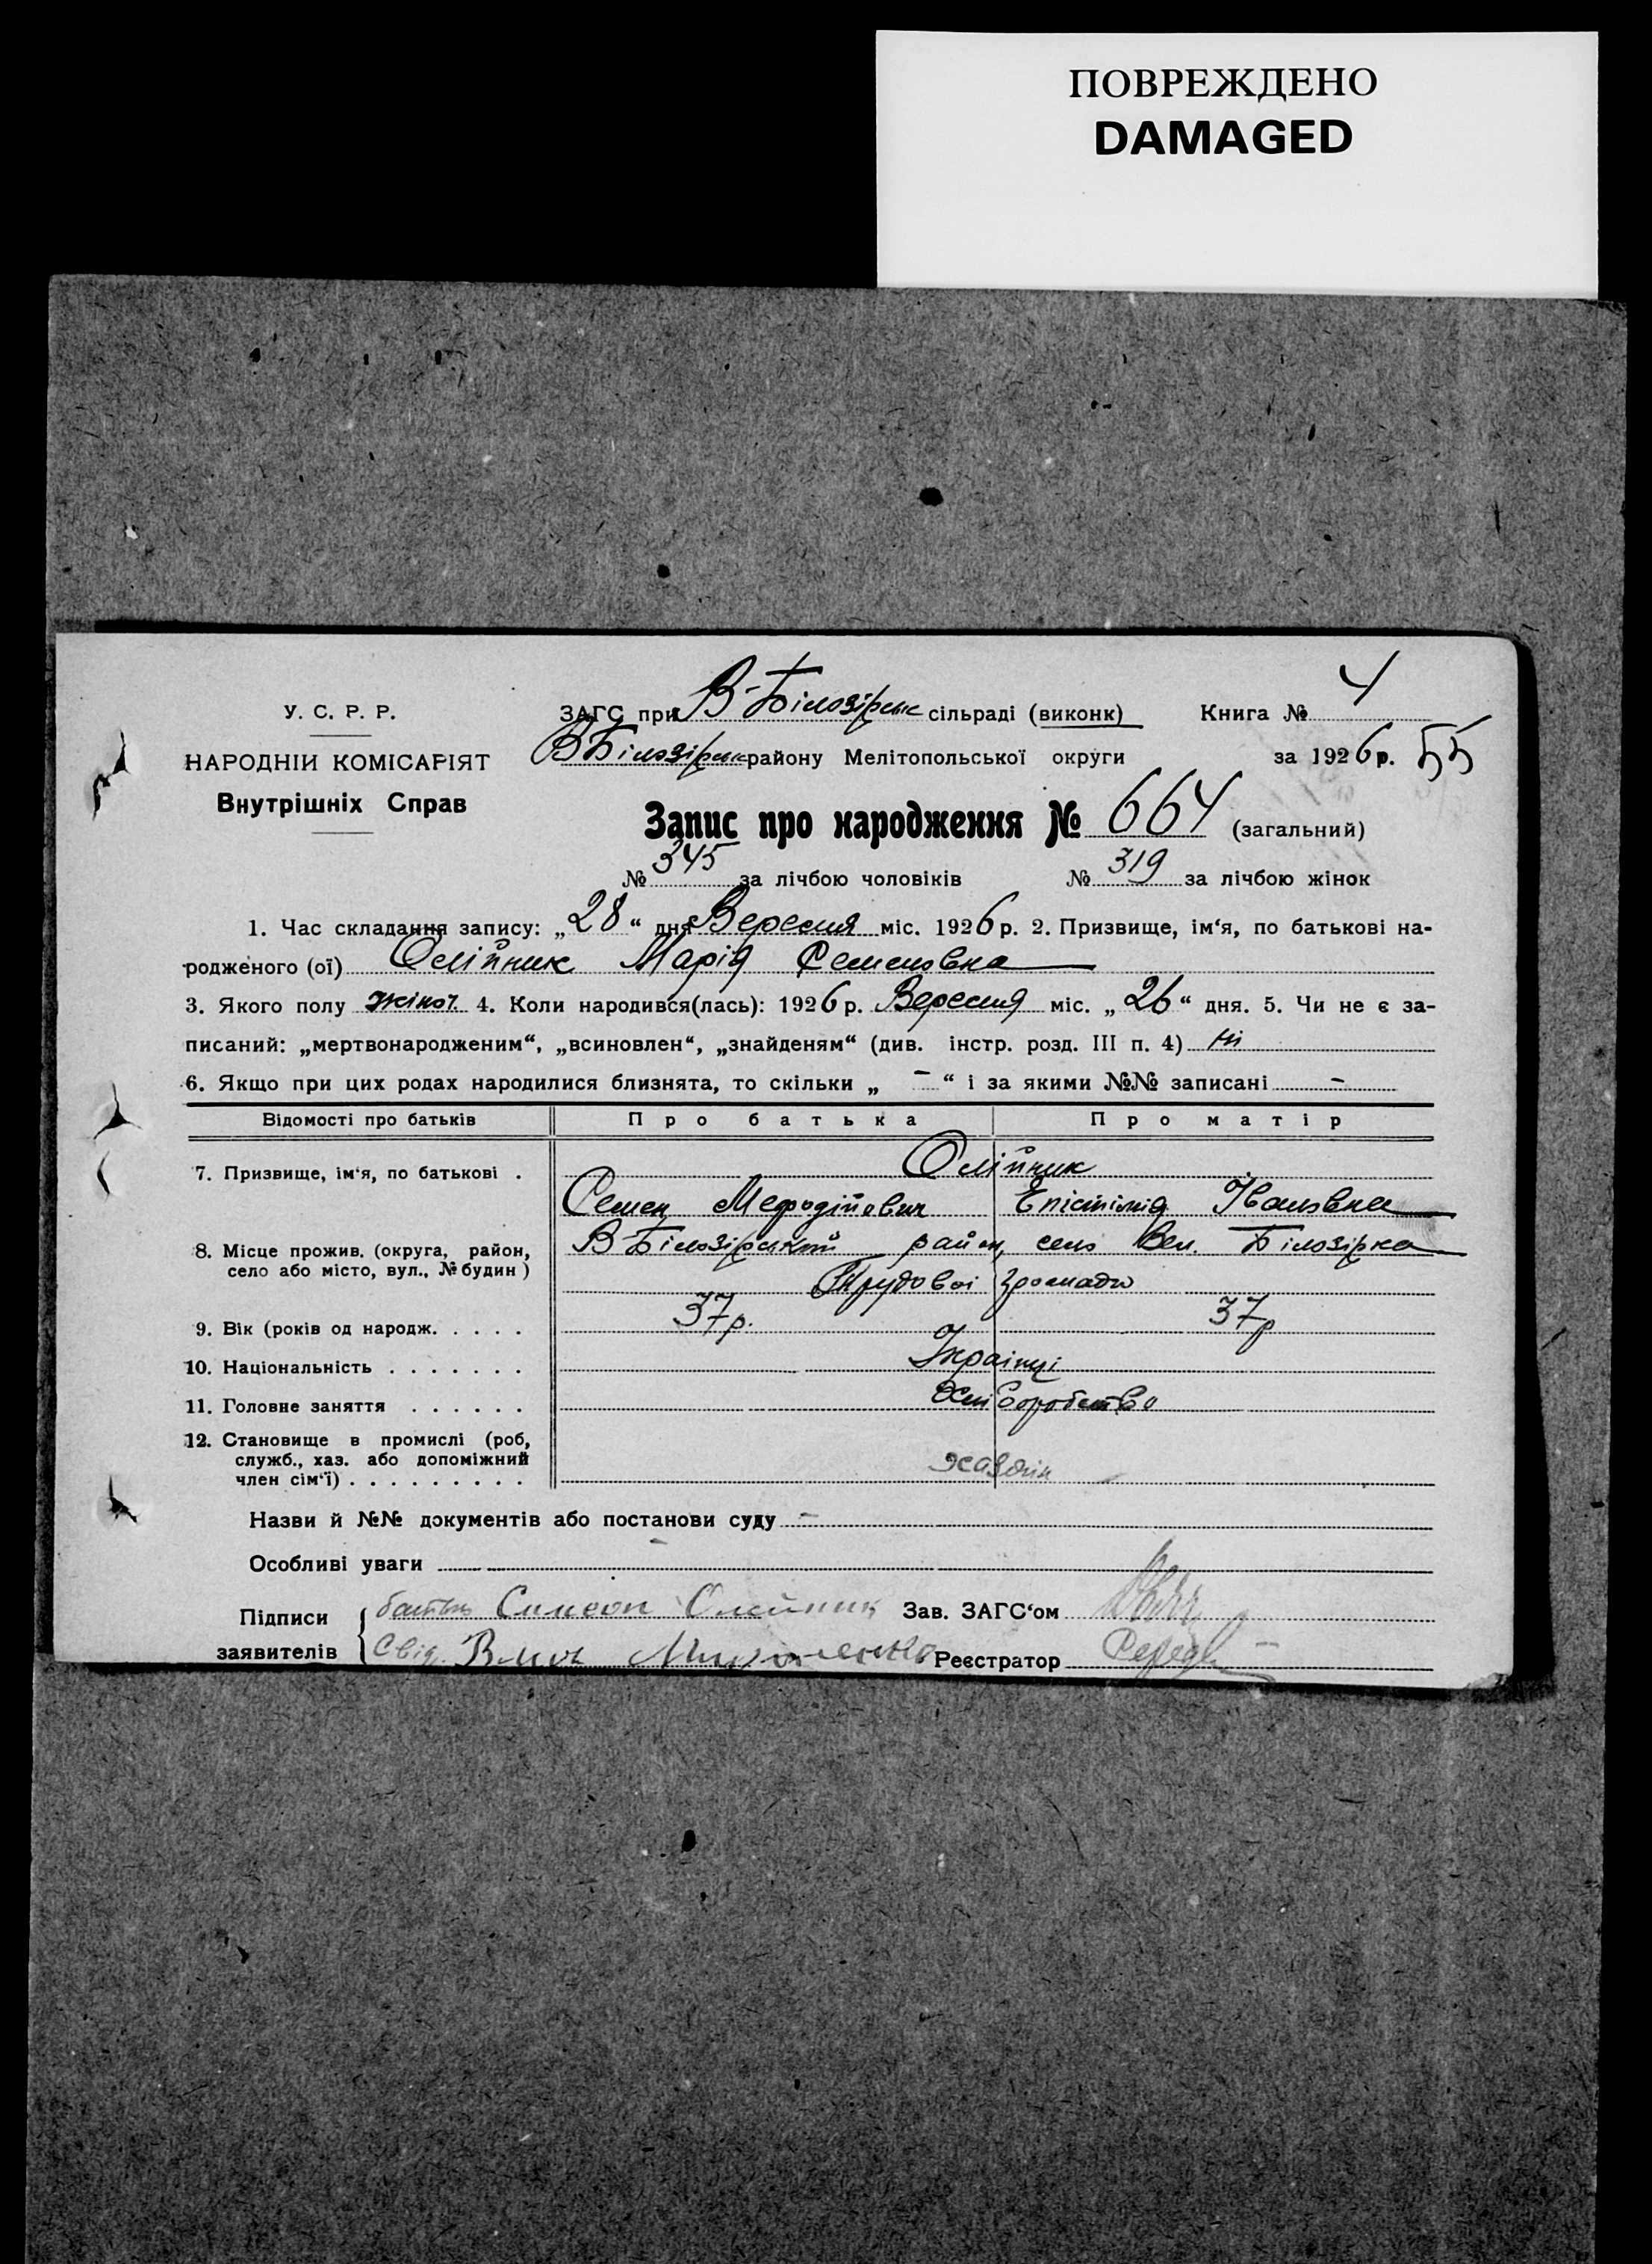 ПОВРЕЖДЕНО
DAMAGED
У. С. Р. Р.
НАРОДНІЙ КОМІСАРІЯТ
Внутрішніх Справ
ЗАГС при В-Білозірськ сільраді (виконк) Книга № 4
В Білозірськ району Мелітопольської округи за 1926 р. 55
Запис про народження № 664 (загальний)
№ 345 за лічбою чоловіків № 319 за лічбою жінок
1. Час складання запису: „28“ дня Вересня міс. 1926 р. 2. Призвище, ім‘я, по батькові на-
родженого (ої) Олійник Марія Семеновна
3. Якого полу жіної 4. Коли народився(лась): 1926 р. Вересня міс. „26“ дня. 5. Чи не є за-
писаний: „мертвонародженим“, „всиновлен“, „знайденям“ (див. інстр. розд. III п. 4) ні
6. Якщо при цих родах народилися близнята, то скільки „ - “ і за якими №№ записані -
Відомості про батьків Про батька Про матір
7. Призвище, ім‘я, по батькові . Олійник
Семен Мефодійович Епістімія Івановна
8. Місце прожив. (округа, район, село або місто, вул., № будин) В-Білозірський район, село Вел. Білозірка
Трудової громади
9. Вік (років од народж. . . . . 37 р. 37 р
10. Національність . . . . . . . Українці
11. Головне заняття . . . . . . Хліборобство
12. Становище в промислі (роб,
служб., хаз. або допоміжний
член сім‘ї) . . . . . . . . . хазяїн
Назви й №№ документів або постанови суду -
Особливі уваги -
Підписи батько Симеон Олейник Зав. ЗАГС‘ом
заявителів Свід. Мироненко Реєстратор